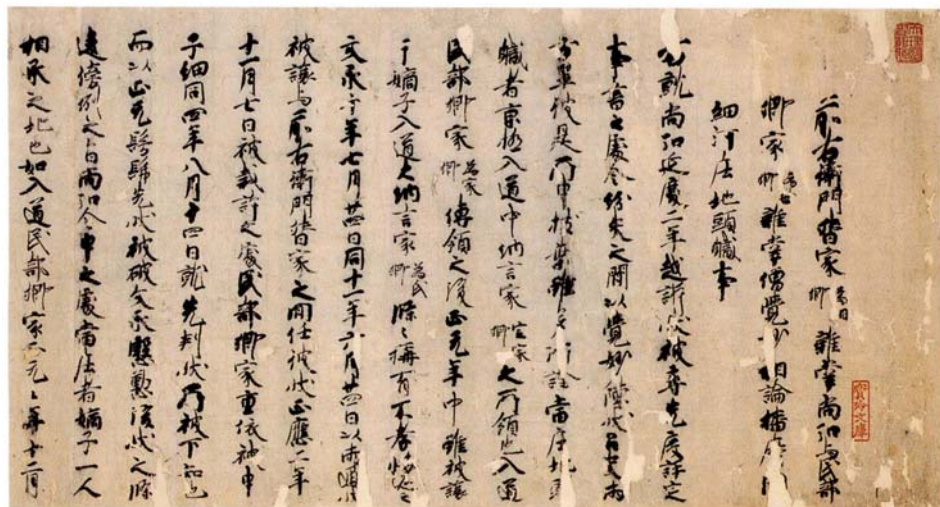 前右衛門督家 為相卿 雑掌尚弘与民部
卿家 為世卿 雑掌僧覚妙相論播磨
細河庄地頭職事
右就尚弘延慶二年越訴状被奉先度評定
事書之處令紛失之間以覚妙
畢彼是所申枝葉雖 所詮當庄地頭
職者京極入道中納言家 定家卿 之所領也入道
民部卿家 為家卿 傳領之後正元々年中雖被讓
于嫡子入道大納言家 為氏卿 條々稱有不孝悔返之
文永十年七月廿四日同十一年六月廿四日以両通状
被讓与前右衛門督家之間任彼状正應二年
十一月七日被裁許之處民部卿家重依被申
子細同四年八月十四日就先判状乃被下知也
而以正元 先状被破文永慇懃後状之條
違傍例之旨尚弘令申之處當庄者嫡子一人
相承之地也如入道民部卿家正元々年十二月
寶玲文庫